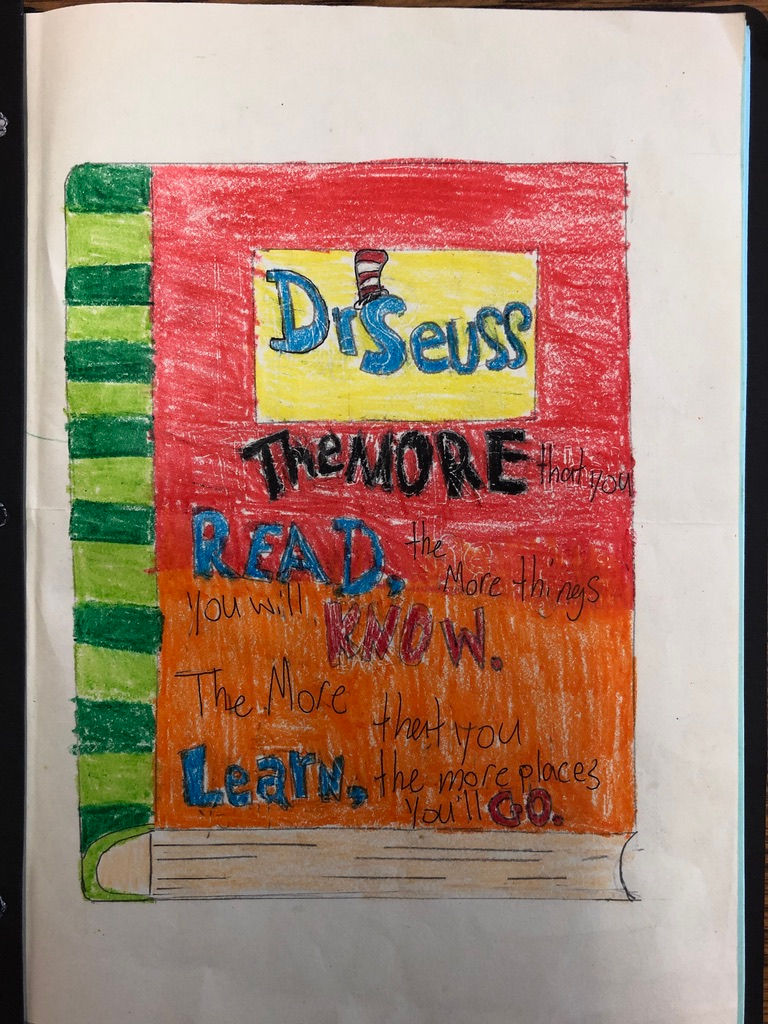 Dr Seuss
The MORE that you
READ, the More things
you will KNOW.
The More that you
Learn, the more places
You'll GO.